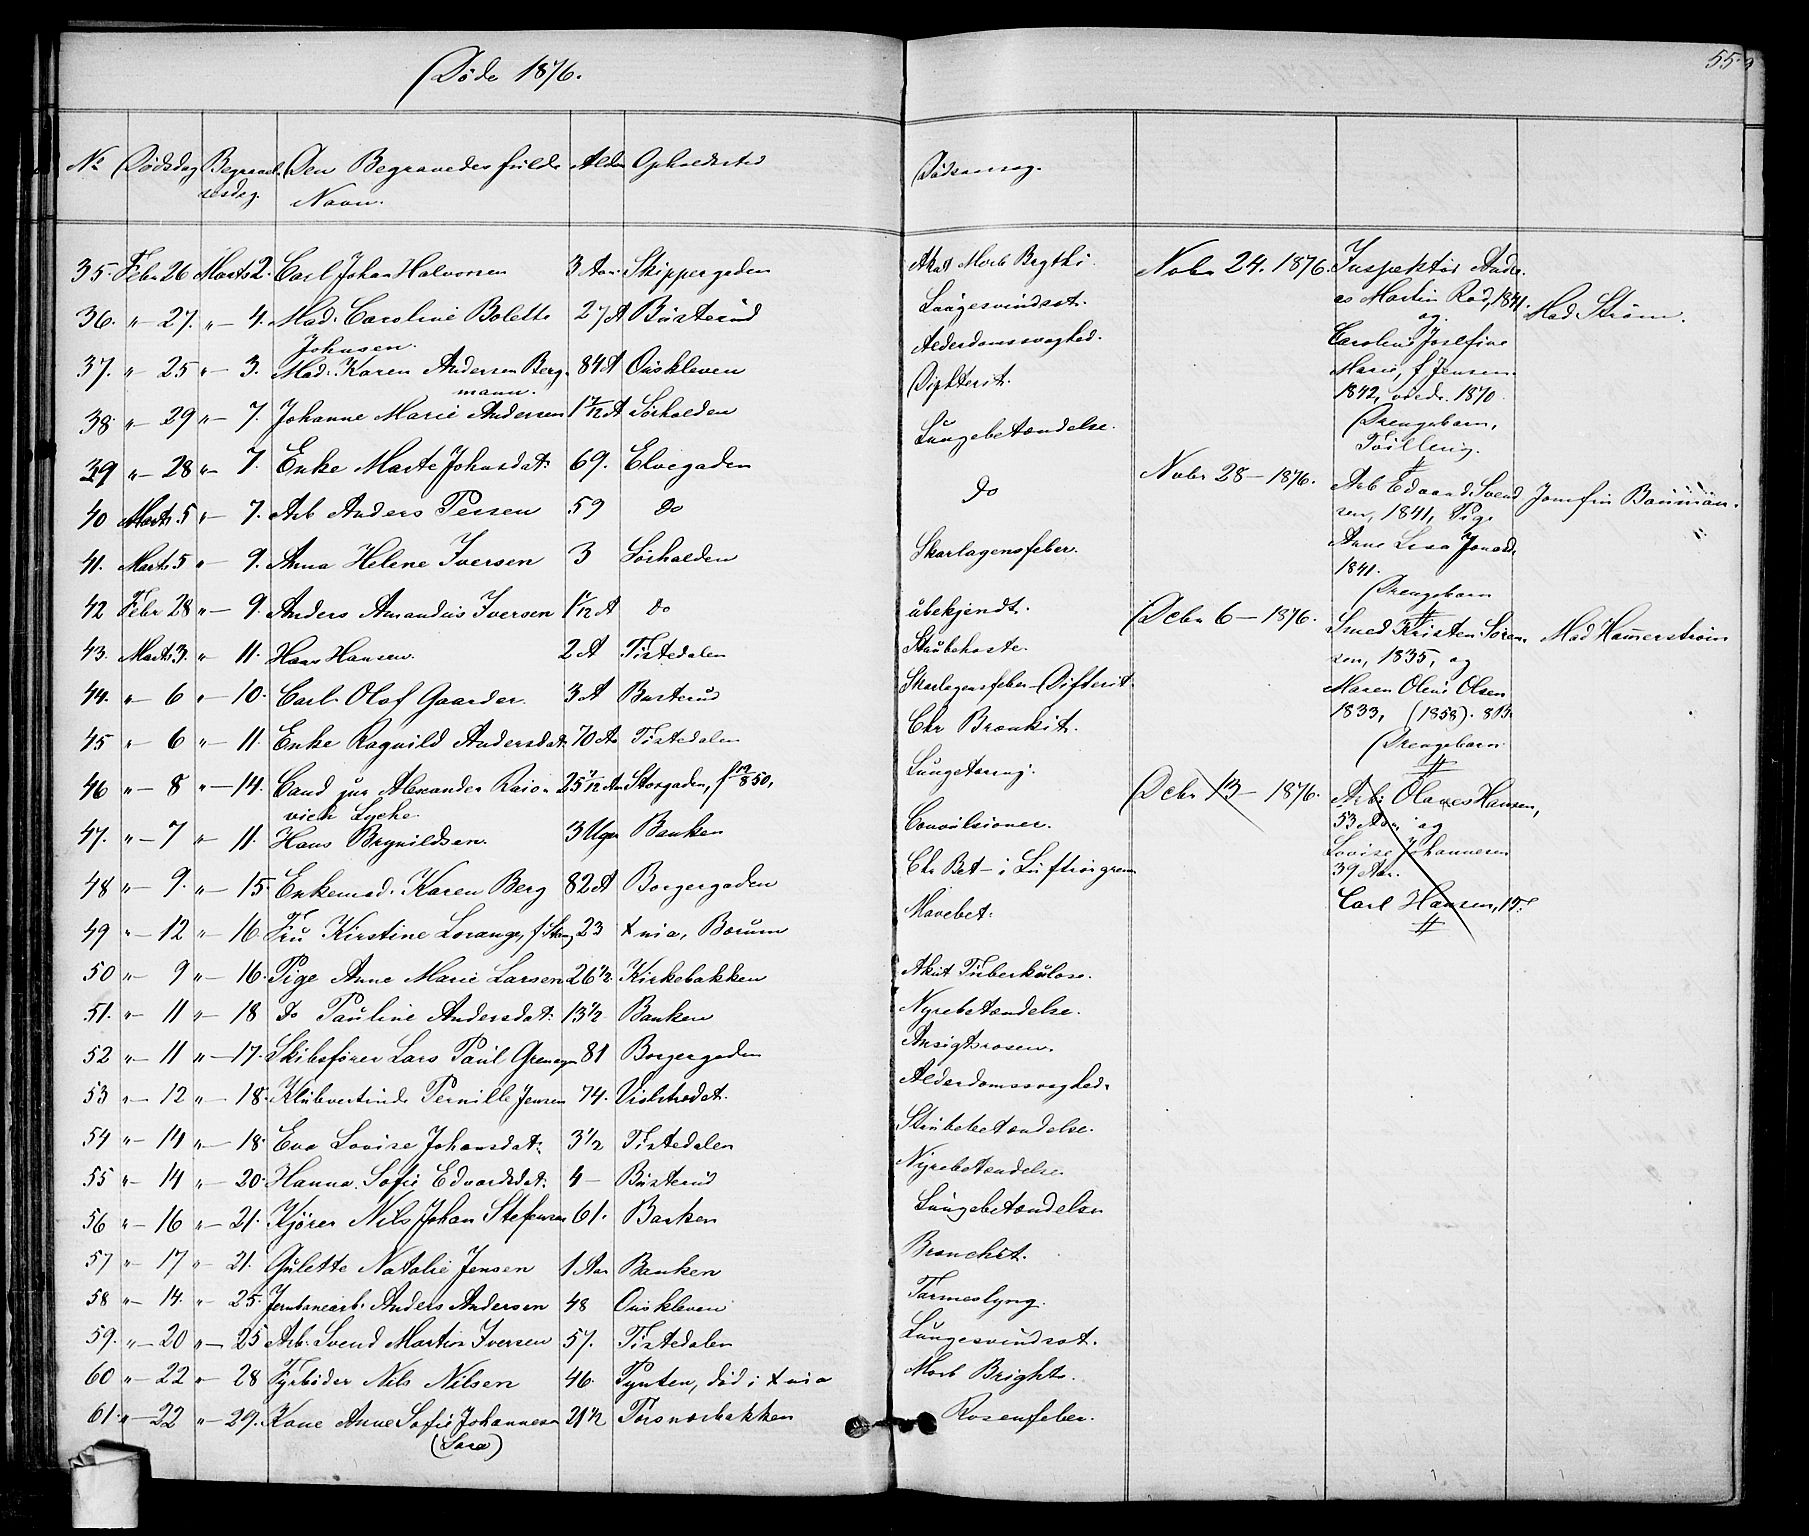 Døde 1876.
55
No Dødsdag Begravelsesdag. Den Begravedes fulde Navn. Alder Opholdssted Dødsaarsag.
35. Febr 26 Marts 2. Carl Johan Halvorsen 3 Aar Skippergaden Akut Morb Brgthi.
36. " - 27. " - 4. Mad. Caroline Bolette Johnsen. 27 A Busterud Lungesvindsot.
37. " 25 " - 3. Mad. Karen Andersen Bergmann. 84 A Ouskleven Alderdomssvaghed.
38. " 29 " - 7. Johanne Marie Andersen 1 7/12 A Sørhalden Difterit.
39 " - 28 " - 7. Enke Marte Johnsdat: 69. Elvegaden Lungebetændelse.
40 Marts 5 " - 7. Arb Anders Persen 59 do do
41. Marts 5 " - 9. Anna Helene Iversen 3 Sørhalden Skarlagensfeber.
42 Febr 28 " - 9. Anders Amandus Iversen 1/12 A do ubekjendt.
43. Marts 3. " 11. Hans Hansen. 2 A Tistedalen Stubehoste.
44. " - 6 " - 10. Carl Olaf Gaarder. 3 A Busterud Skarlagensfeber - Difterit.
45 " - 6 " - 11. Enke Ragnild Andersdat: 70 Aa Tistedalen Chr Bronkit.
46 " - 8 " - 14. Cand jur Alexander Lycke. 25 7/12 Aar Storgaden,
47. " - 7 " 11. Hans Brynildsen. 3 Uger Banken Convulsioner.
48 " - 9. " - 15 Enkemad. Karen Berg 82 A Borgergaden Chr Bet - i
49 " - 12 " - 16 Fru Kirstine Lorange, 23 Xnia, Bærum Mavebet:
50 " 9 " - 16. Pige Anne Marie Larsen 26 1/2 Kirkebakken Akut Tuberkulose.
51. " - 11 " - 18 do Pauline Andersdat: 13 1/2 Banken Nyrebetændelse.
52 " - 11 " - 17. Skibsfører Lars Paul 81 Borgergaden Ansigtsrosen.
53 " - 12 " - 18. Klubvertinde Pernille Jensen 74. Alderdomssvaghed.
54 " - 14 " - 18. Eva Lovise Johansdat: 3 1/2 Tistedalen Strubebetændelse.
55 " - 14 " - 20. Hanna Sofie Edvardsdat: 4 - Busterud Nyrebetændelse
56 " - 16 " - 21. Kjører Nils Johan Stefensen 61. Banken Lungebetændelse
57 " - 17 " - 21. Gulette Natalie Jensen 1 Aar Banken Bronchit.
58 " - 14. " - 25. Jernbanearb. Anders Andersen 48 Ouskleven Tarmeslyng.
59. " - 20 " - 25 Arb. Svend Martin Iversen 57. Tistedalen Lungesvindsot.
60 " - 22 " - 28 Fyrbøder Nils Nilsen 46. Pynten, død i Xnia Morb Brights.
61. " - 22 " - 29. Kone Anne Sofie Johannesen 21 1/2 Torsnæsbakken Rosenfeber.
Nobr 24. 1876. Inspektør Andreas Martin Rød, 1841. Mad Strøm.
og
Caroline Josefine
Marie, f Jensen.
1842, viede 1870.
Drengebarn,
Tvilling.
Nobr 28 - 1876. Arb Edvard Svendsen, 1841, Pige
Anne Lisa
1841.
Drengebarn
Debr 6 - 1876. Smed Kristen Sørensen, 1835, og Mad Hammerstrøm
Maren Oline Olsen
1833, (1858).
Drengebarn
Debr 13 - 1876. Arb: Olaves Hansen,
53 Aar, og
Lovise Johannesen
39 Aar.
Carl Hansen,